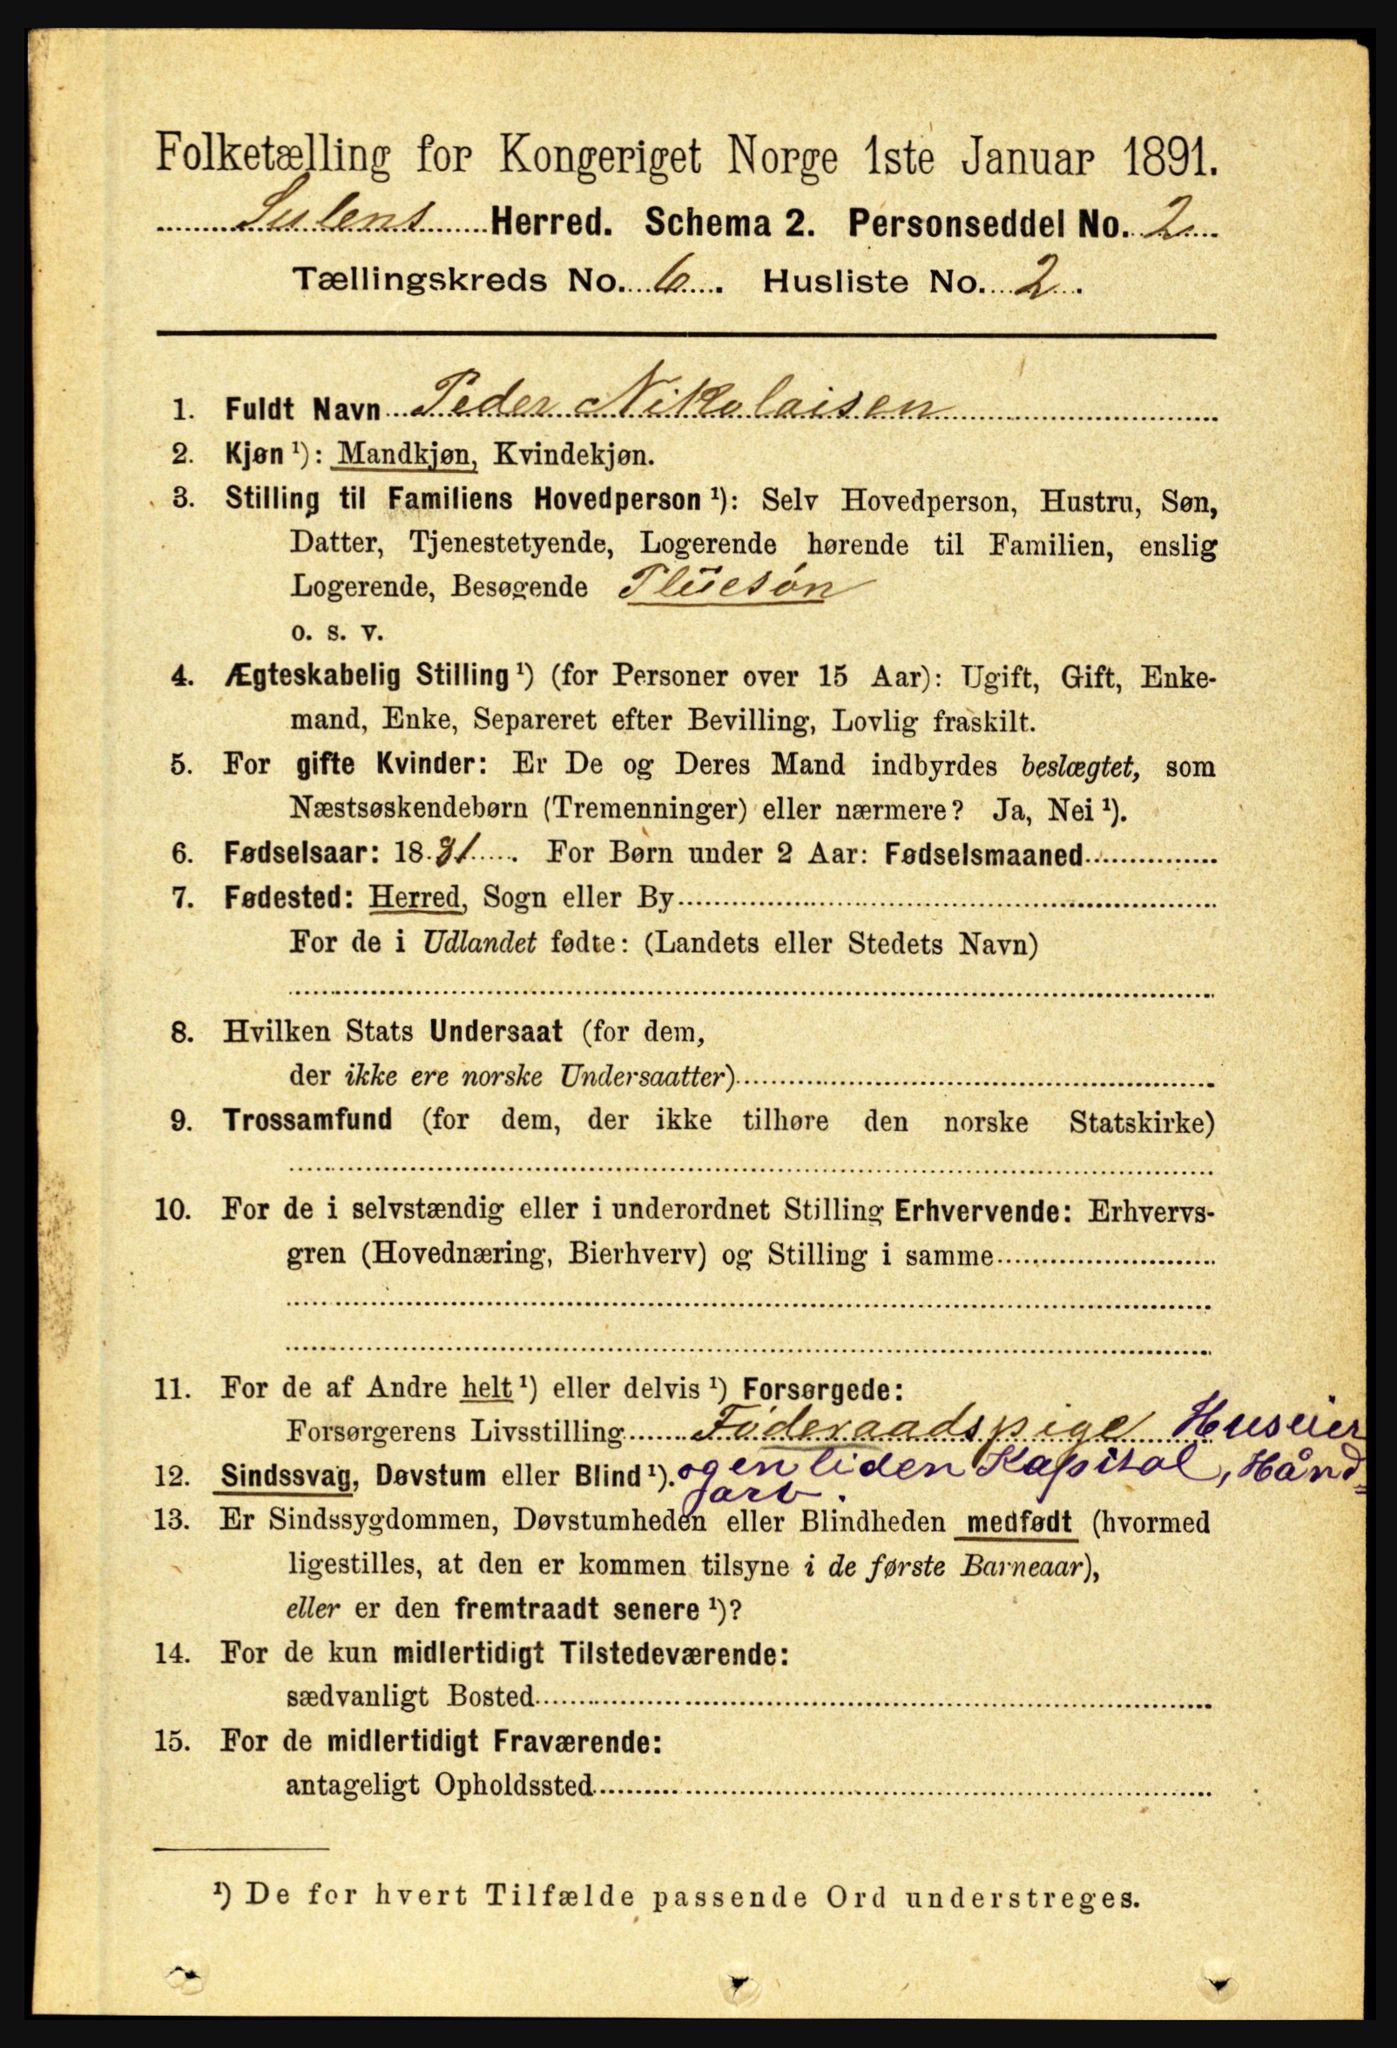 Folketælling for Kongeriget Norge 1ste Januar 1891.
Sulens Herred. Schema 2. Personseddel No. 2
Tællingskreds No. 6. Husliste No. 2.
1. Fuldt Navn Peder Nikolaisen
2. Kjøn ¹): Mandkjøn, Kvindekjøn.
3. Stilling til Familiens Hovedperson ¹): Selv Hovedperson, Hustru, Søn,
Datter, Tjenestetyende, Logerende hørende til Familien, enslig
Logerende, Besøgende Pleiesøn
o. s. v.
4. Ægteskabelig Stilling ¹) (for Personer over 15 Aar): Ugift, Gift, Enke-
mand, Enke, Separeret efter Bevilling, Lovlig fraskilt.
5. For gifte Kvinder: Er De og Deres Mand indbyrdes beslægtet, som
Næstsøskendebørn (Tremenninger) eller nærmere? Ja, Nei ¹).
6. Fødselsaar: 1881. For Børn under 2 Aar: Fødselsmaaned
7. Fødested: Herred, Sogn eller By
For de i Udlandet fødte: (Landets eller Stedets Navn)
8. Hvilken Stats Undersaat (for dem,
der ikke ere norske Undersaatter)
9. Trossamfund (for dem, der ikke tilhøre den norske Statskirke)
10. For de i selvstændig eller i underordnet Stilling Erhvervende: Erhvervs-
gren (Hovednæring, Bierhverv) og Stilling i samme
11. For de af Andre helt ¹) eller delvis ¹) Forsørgede:
Forsørgerens Livsstilling Føderaadspige Huseier
12. Sindssvag, Døvstum eller Blind ¹). og en liden Kapital, Hånd=
arb.
13. Er Sindssygdommen, Døvstumheden eller Blindheden medfødt (hvormed
ligestilles, at den er kommen tilsyne i de første Barneaar),
eller er den fremtraadt senere ¹)?
14. For de kun midlertidigt Tilstedeværende:
sædvanligt Bosted
15. For de midlertidigt Fraværende:
antageligt Opholdssted
¹) De for hvert Tilfælde passende Ord understreges.